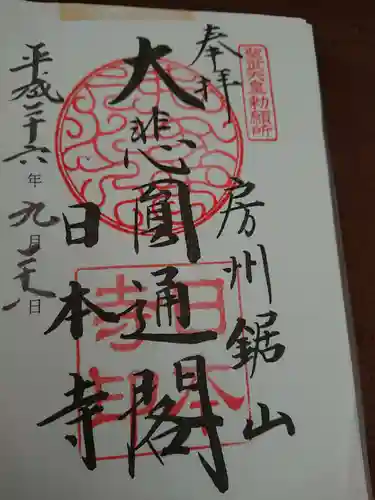 聖武天皇勅願所
奉拝
房州鋸山
大悲圓通閣
日本寺
平成二十六年九月二十八日